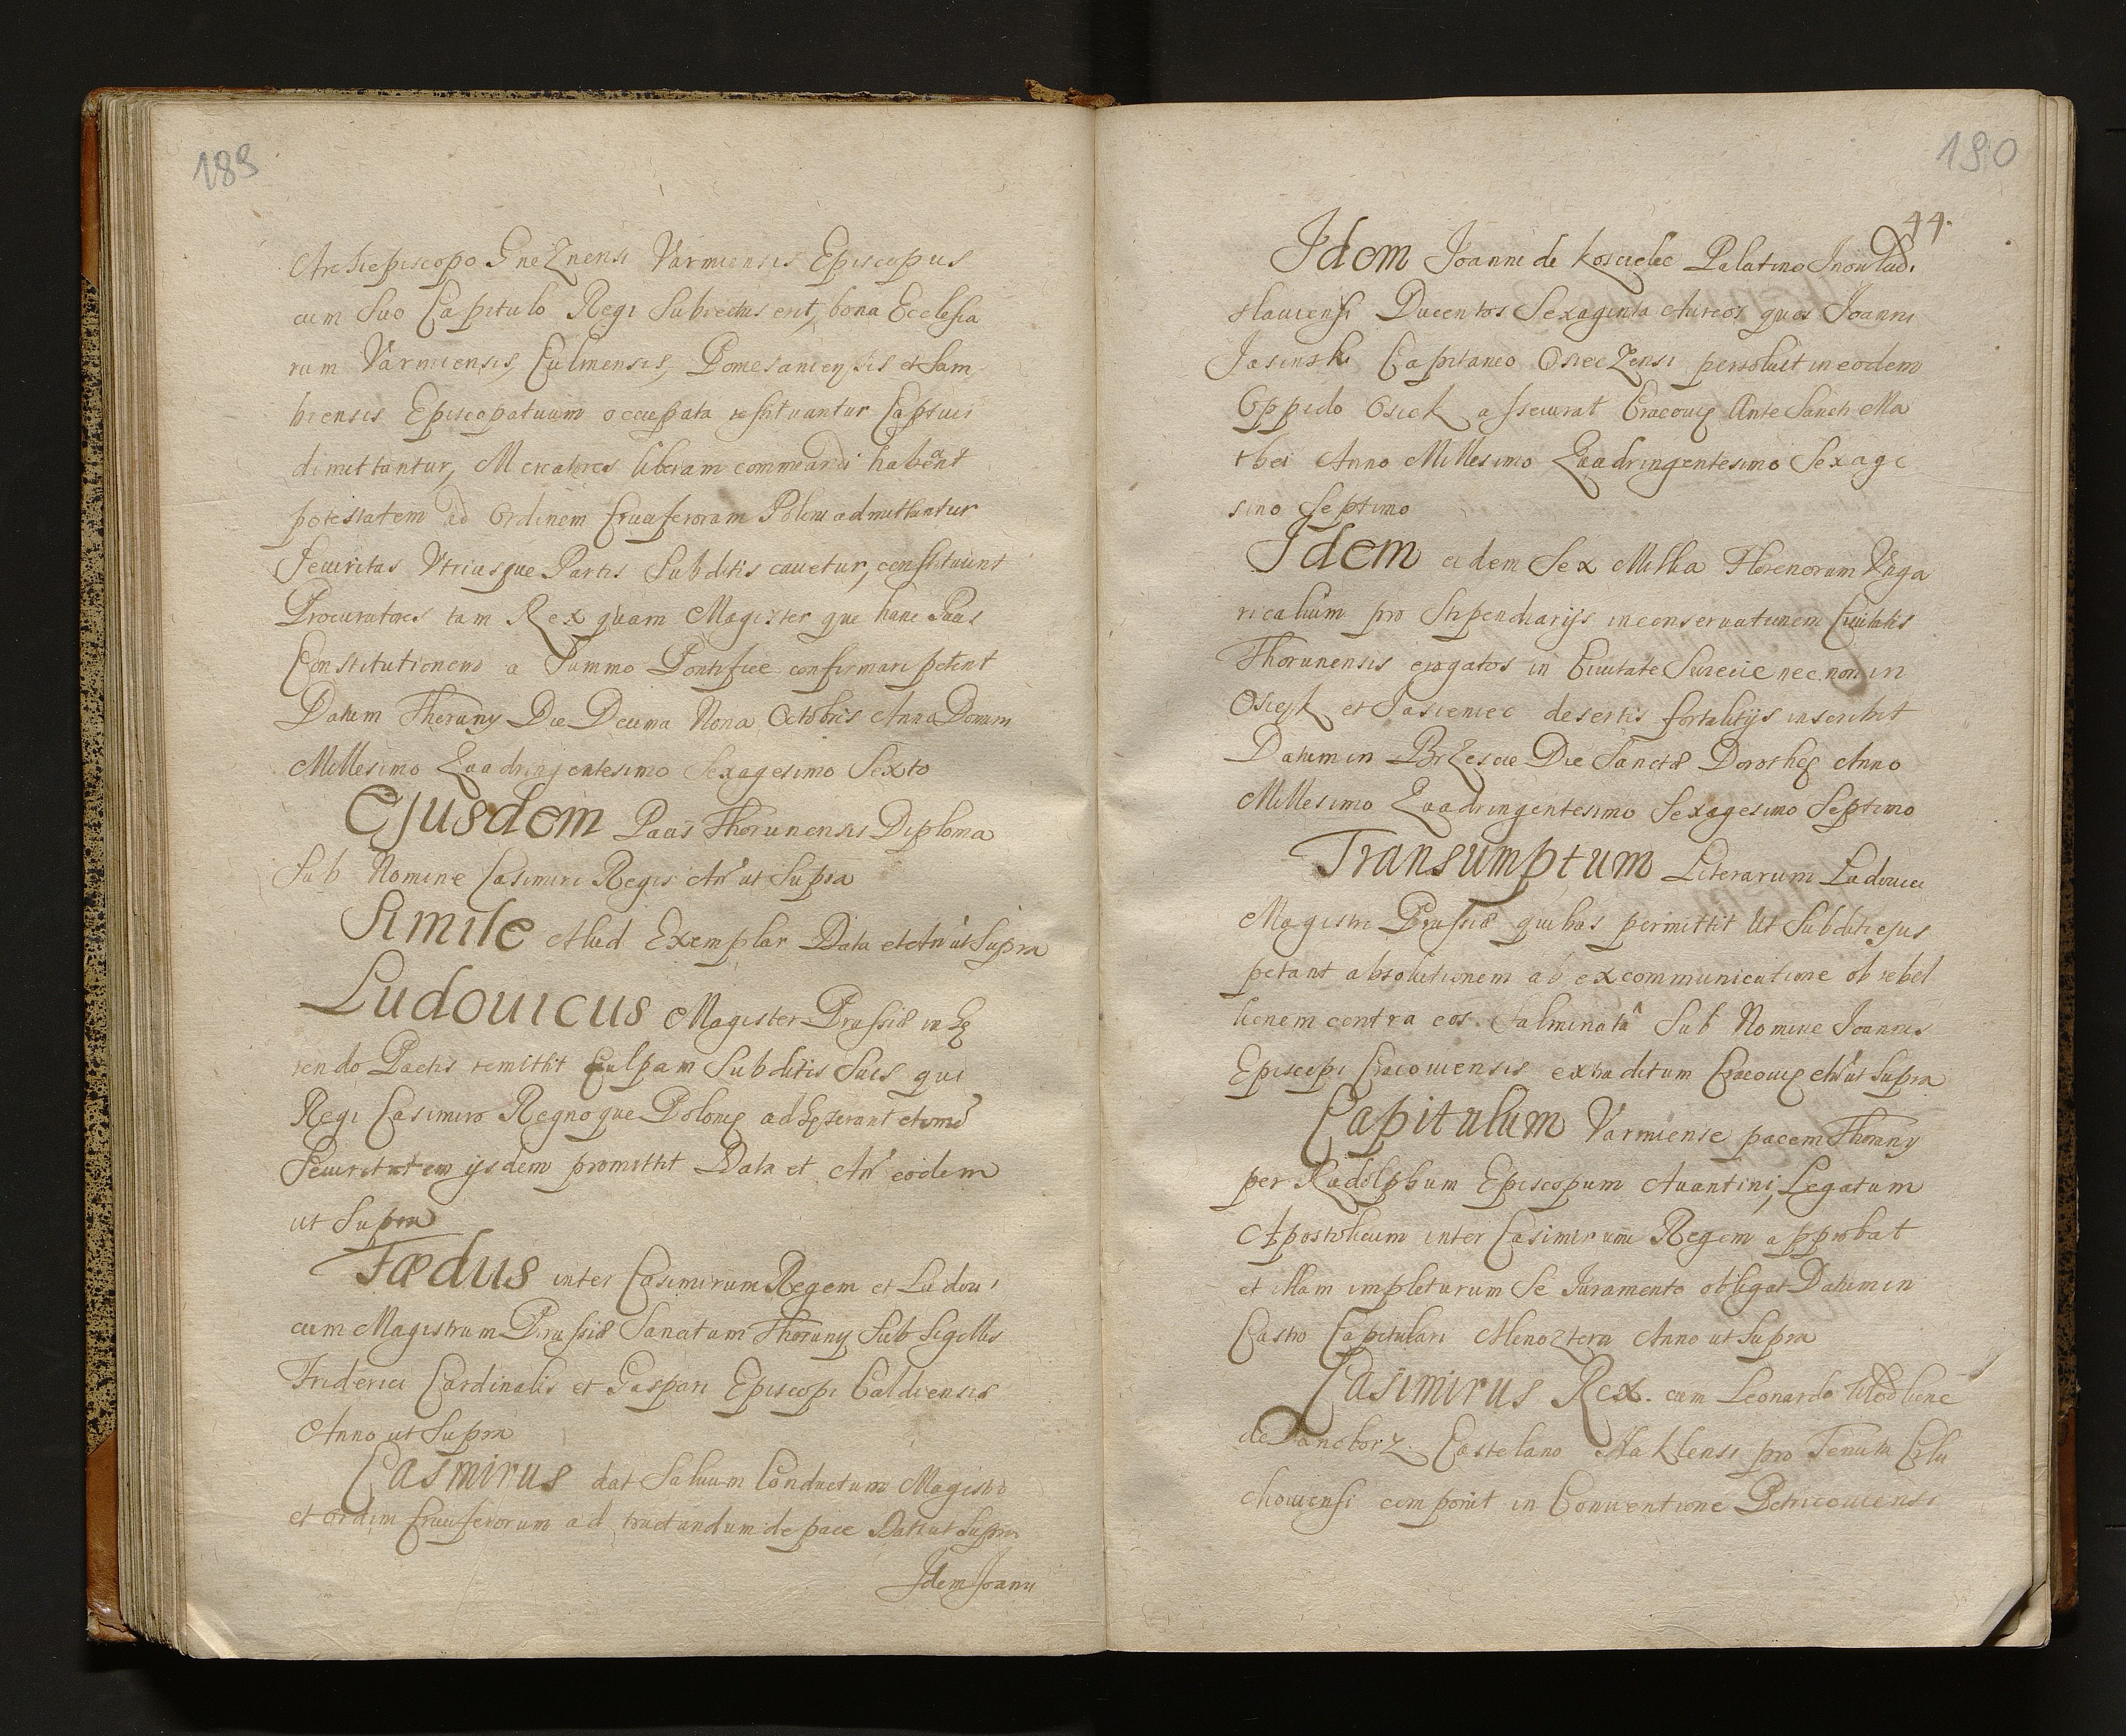 189
Archiepiscopo Gneznensi Varmiensis Episcopus
cum Suo Capitulo Regi Subiectus erit, bona Ecclesia
rum Varmiensis, Culmensis, Pomesaniensis et Sam
biensis Episcopatuum occupata restituantur Captivi
dimittantur, Mercatores liberam commeandi habeant
potestatem ad Ordinem Cruciferorum Poloni admittantur
Securitas Utriusque Partis Subditis cavetur, constituunt
Procuratores tam Rex quam Magister qui hanc Pacis
Constitutionem a Summo Pontifice confirmari petent
Datum Thoruny Die Decima Nona Octobris Anno Domini
Millesimo Quadringentesimo Sexagesimo Sexto
Ejusdem Pacis Thorunensis Diploma
Sub Nomine Casimiri Regis An̄ ut Supra
Simile Aliud Exemplar Data et An̄ ut Supra
Ludouicus Magister Prussiæ inhę
rendo Pactis remittit Culpam Subditis Suis qui
Regi Casimiro Regnoque Polonię adhęserant et
Securitatem ijsdem promittit Data et An̄ eodem
ut Supra
Fædus inter Casimirum Regem et Ludoui
cum Magistrum Prussiæ Sancitam Thoruny Sub Sigillis
Friderici Cardinalis et Gaspari Episcopi Caldiensis
Anno ut Supra
Casmirus dat Saluum Conductum Magistro
et ordini Cruciferorum ad tractandum de pace Dat: ut Supra
Idem Joanni
190
44.
Idem Joanni de Koscielec Palatino Inowlad.
slauiensi Ducentos Sexaginta Aureos quos Joanni
Jasinski Capitaneo Osieczensi persoluit in eodem
Oppido Osiek asseurat Cracouię Ante Sancti Ma
thei Anno Millesimo Quadringentesimo Sexage
simo Septimo
Idem eidem Sex Millia Florenorum Vnga
ricalium pro Stipendiarijs in conseruationem Ciuitatis
Thorunensis erogatos in Ciuitate Suiecie nec non in
Osiek et Jasieniec desertis fortalitijs inscribit
Datum in Brzescie Die Sanctæ Dorothę Anno
Millesimo Quadringentesimo Sexagesimo Septimo
Transumptum Literarum Ludouici
Magistri Prussiæ quibus permittit Ut Subditi ejus
petant absolutionem ab excommunicatione ob rebel
lionem contra eos fulminatâ Sub Nomine Joannis
Episcopi Cracouiensis extraditum Cracouię An̄ ut Supra
Capitulum Varmiense pacem Thoruny
per Rudolphum Episcopum Auantini, Legatum
Apostolicum inter Casimirum Regem approbat
et illam impleturum Se Juramento obligat Datum in
Castro Capitulari Alenoztern Anno ut Supra
Casimirus Rex. cum Leonardo
de Castelano Naklensi pro Tenuta Czlu
chouiensi componit in Conuentione Petricouiensi